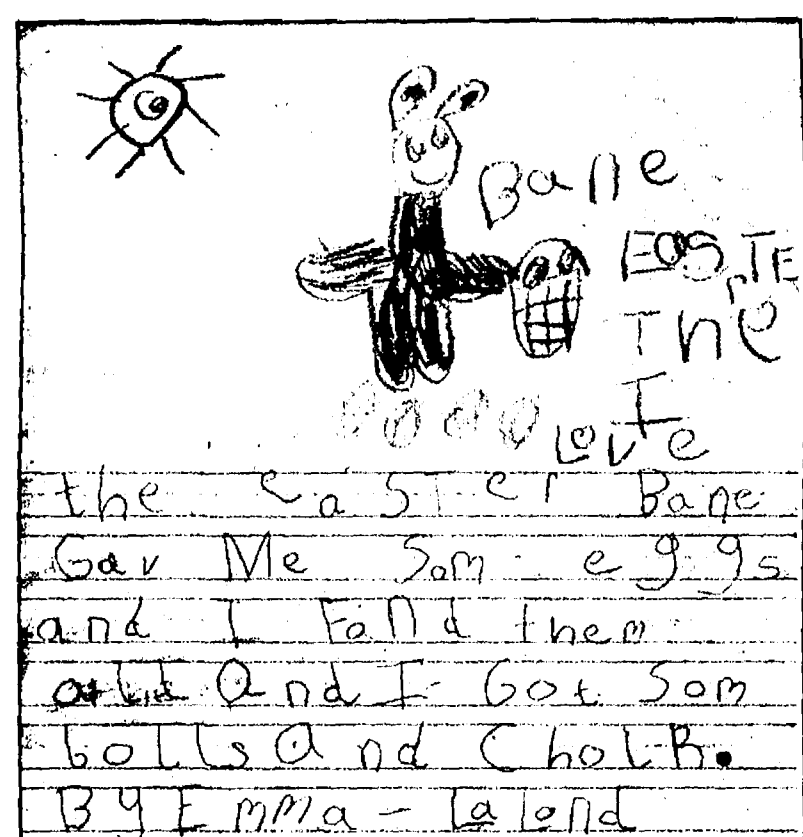 Bane
EASrTE
The
I
Love
the eaSTer Bane
Gav Me Som eggs
and I FaNd them
And I Got Som
bolls And Cholk.
By Emma - Lalond